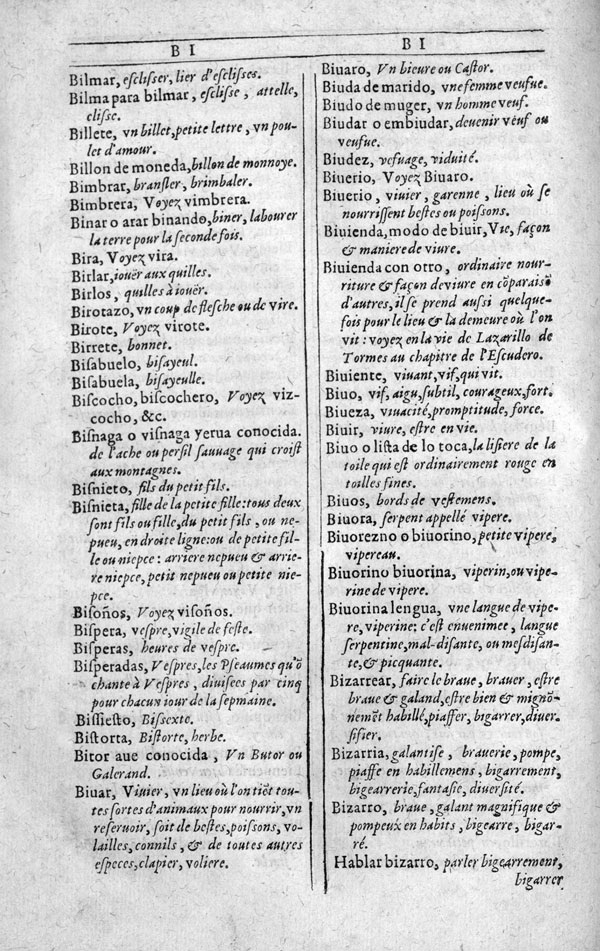 B I
Bilmar, eſcliſſer, lier d'eſcliſſes.
Bilma para bilmar, eſcliſſe, attelle,
cliſſe.
Billete, vn billet, petite lettre, vn pou-
let d'amour.
Billon de moneda, billon de monnoye.
Bimbrar, branſler, brimbaler.
Bimbrera, Voyez vimbrera.
Binar o arar binando, biner, labourer
la terre pour la ſeconde fois.
Bira, Voyez vira.
Birlar, ioüer aux quilles.
Birlos, quilles à ioüer.
Birotazo, vn coup de fleſche ou de vire.
Birote, Voyez virote.
Birrete, bonnet.
Biſabuelo, biſayeul.
Biſabuela, biſayeulle.
Biſcocho, biſcochero, Voyez viz-
cocho, &c.
Biſnaga o viſnaga yerua conocida.
de l'ache ou perſil ſauuage qui croiſt
aux montagnes.
Biſnieto, fils du petit fils.
Biſnieta, fille de la petite fille: tous deux
ſont fils ou fille, du petit fils, ou ne-
pueu, en droite ligne: ou de petite fil-
le ou niepce: arriere nepueu & arrie-
re niepce, petit nepueu ou petite nie-
pce.
Biſoños, Voyez viſoños.
Biſpera, veſpre, vigile de feſte.
Biſperas, heures de veſpre.
Biſperadas, Veſpres, les Pſeaumes qu'õ
chante à Veſpres, diuiſees par cinq
pour chacun iour de la ſepmaine.
Biſſieſto, Biſſexte.
Biſtorta, Biſtorte, herbe.
Bitor aue conocida, Vn Butor ou
Galerand.
Biuar, Viuier, vn lieu où l'on tiẽt tou-
tes ſortes d'animaux pour nourrir, vn
reſeruoir, ſoit de beſtes, poiſſons, vo-
lailles, connils, & de toutes autres
eſpeces, clapier, voliere.
B I
Biuaro, Vn bieure ou Caſtor.
Biuda de marido, vne femme veufue.
Biudo de muger, vn homme veuf.
Biudar o embiudar, deuenir veuf ou
veufue.
Biudez, vefuage, viduité.
Biuerio, Voyez Biuaro.
Biuerio, viuier, garenne, lieu où ſe
nourriſſent beſtes ou poiſſons.
Biuienda, modo de biuir, Vie, façon
& maniere de viure.
Biuienda con otro, ordinaire nour-
riture & façon de viure en cõparaisõ
d'autres, il ſe prend auſſi quelque-
fois pour le lieu & la demeure où l'on
vit: voyez en la vie de Lazarillo de
Tormes au chapitre de l'Eſcudero.
Biuiente, viuant, vif, qui vit.
Biuo, vif, aigu, ſubtil, courageux, fort.
Biueza, viuacité, promptitude, force.
Biuir, viure, eſtre en vie.
Biuo o liſta de lo toca, la liſiere de la
toile qui eſt ordinairement rouge en
toilles fines.
Biuos, bords de veſtemens.
Biuora, ſerpent appellé vipere.
Biuorezno o biuorino, petite vipere,
vipereau.
Biuorino biuorina, viperin, ou vipe-
rine de vipere.
Biuorina lengua, vne langue de vipe-
re, viperine: c'eſt enuenimee, langue
ſerpentine, mal-diſante, ou meſdiſan-
te, & picquante.
Bizarrear, faire le braue, brauer, eſtre
braue & galand, eſtre bien & mignõ-
nemẽt habillé, piaffer, bigarrer, diuer-
ſifier.
Bizarria, galantiſe, brauerie, pompe,
piaffe en habillemens, bigarrement,
bigearrerie, fantaſie, diuerſité.
Bizarro, braue, galant magnifique &
pompeux en habits, bigearre, bigar-
ré.
Hablar bizarro, parler bigearrement,
bigarrer